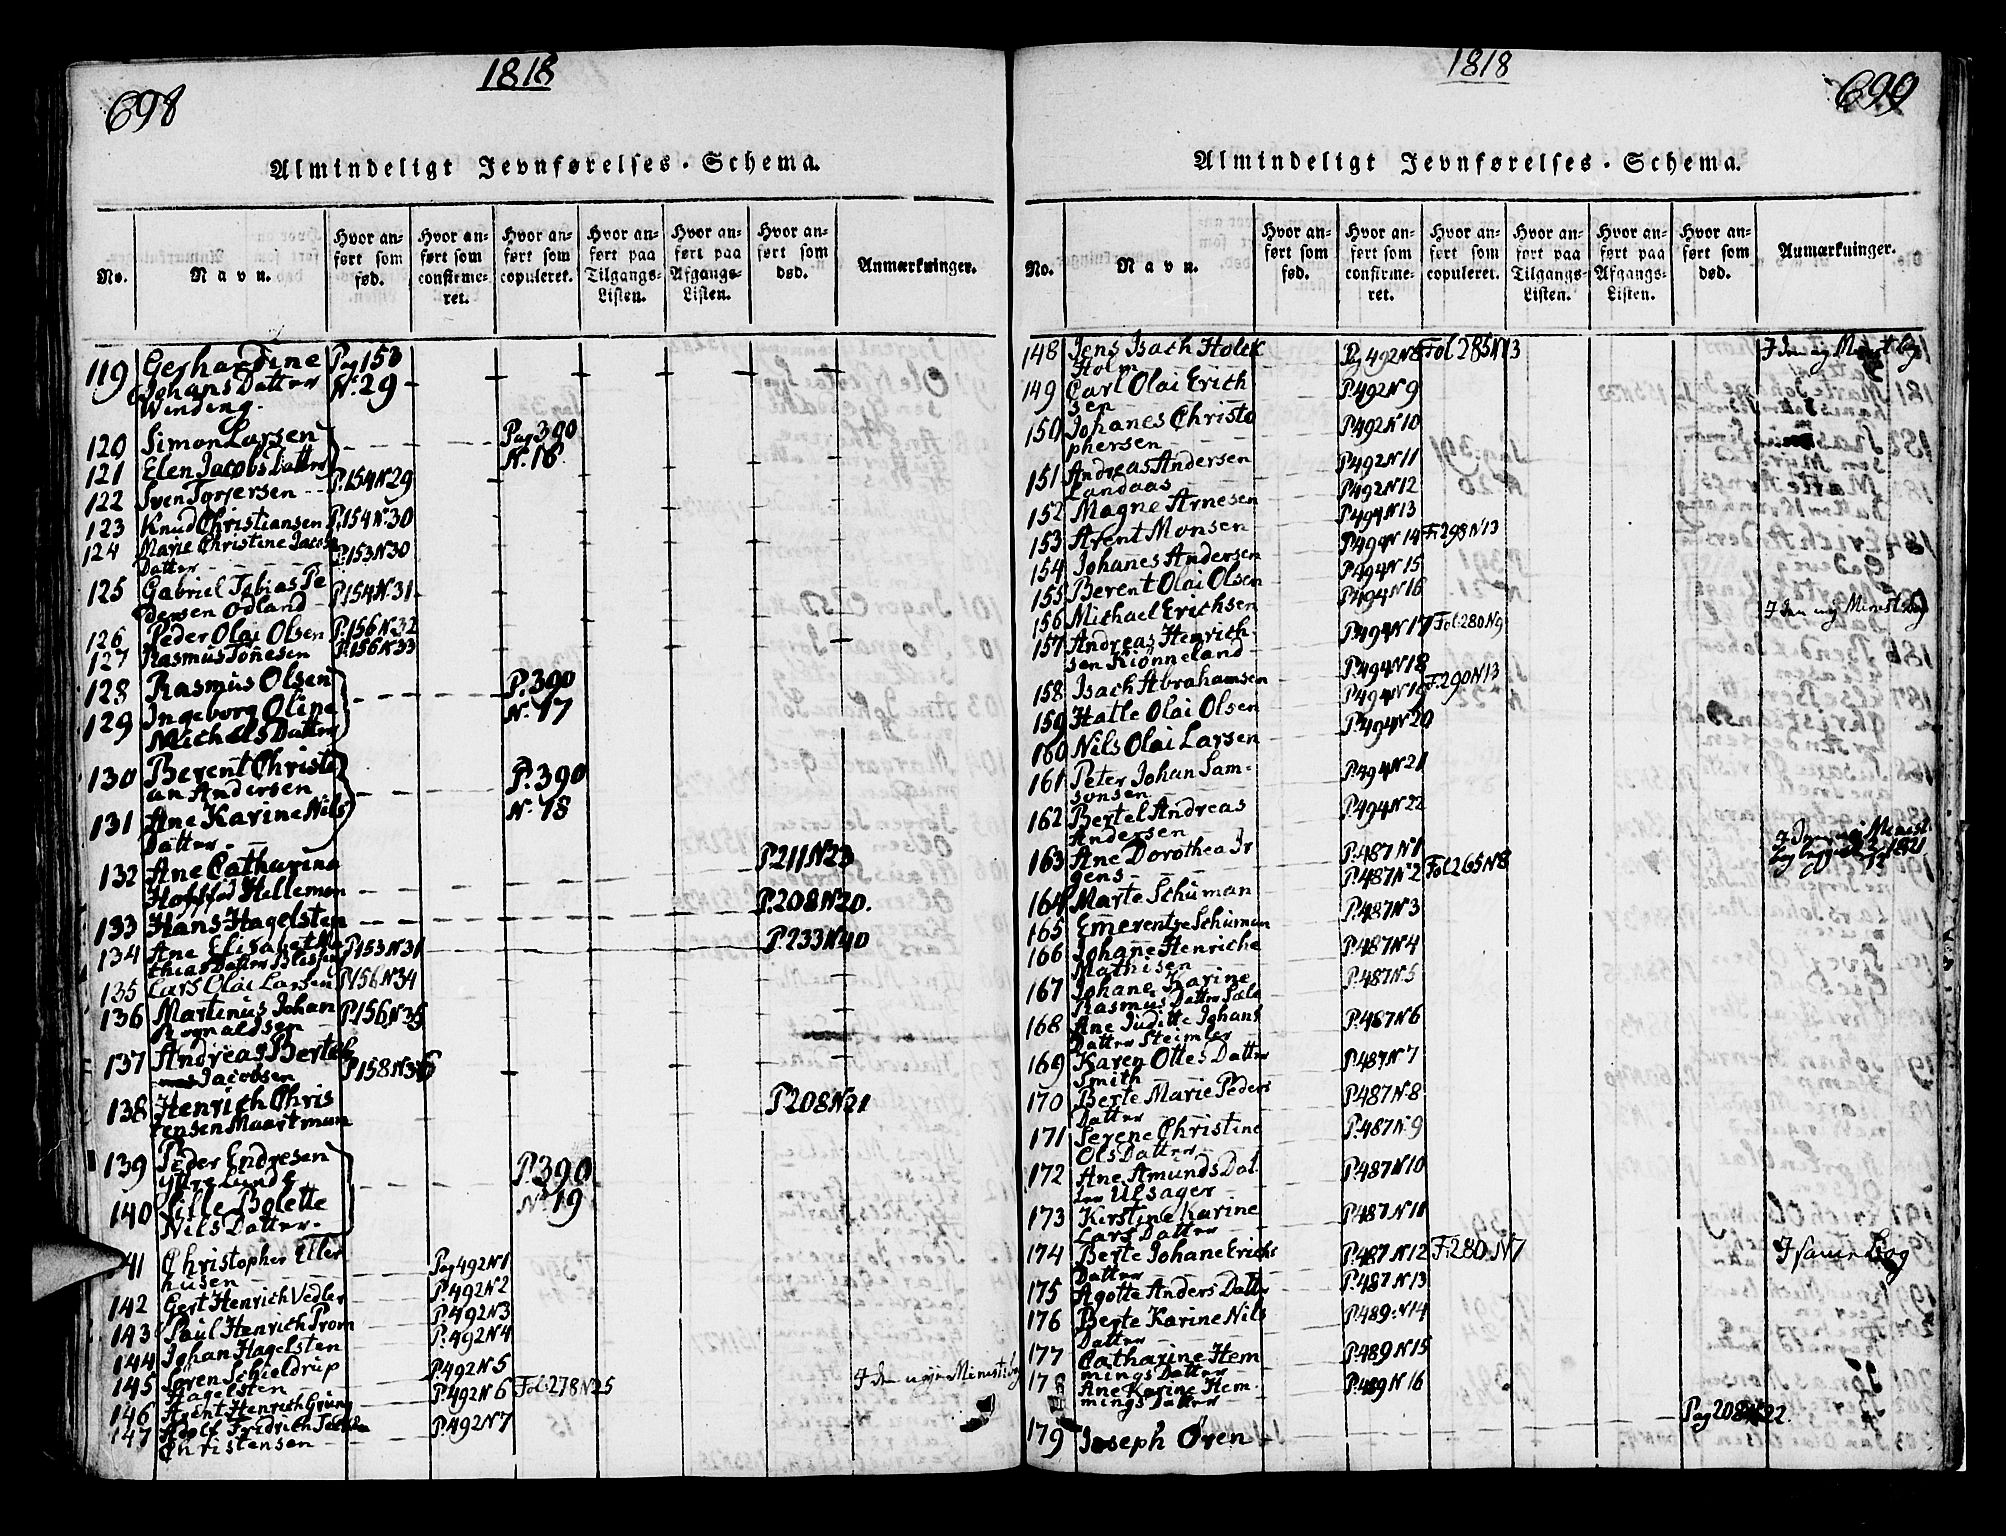 698
1818
Almindeligt Jevnførelses-Schema.
No.
Navn.
Hvor anført som fød.
Hvor anført som confirmeret.
Hvor anført som copuleret.
Hvor anført paa Tilgangs-Listen.
Hvor anført paa Afgangs-Listen.
Hvor anført som død.
Anmærkninger.
119 Gerhardine Pag 153
Johans Datter N. 29
Winding.
120 Simon Larsen Pag 390
121 Elen Jacobs Datter N. 16
122 Sven Torjersen P. 154 N 29
123 Knud Christiansen P. 154 N. 30
124 Marie Christine Jacobs
Datter P. 153 N 30
125 Gabriel Tobias Pe
dersen Odland P. 154 N. 31
126 Peder Olai Olsen P. 156 N. 32
127 Rasmus Tonesen P. 156 N. 33
128 Rasmus Olsen P. 390
129 Ingeborg Oline N. 17
Michels Datter
130 Berent Christi P. 390
an Andersen N. 18
131 Ane Karine Nils
Datter
132 Ane Catharina P. 211 N 23
Helleman
133 Hans Hagelsten P. 208 N 20.
134 Ane Elisabet Ma P. 153 N 31 P. 233 N 40
thias Datter
135 Lars Olai Larsen P. 156 N 34
136 Martinus Johan P. 156 N 35
Rognaldsen
137 Andreas Bertel
Jacobsen P. 158 N 36
138 Henrich Chris P. 208 N 21
tensen Maartman
139 Peder Endresen P. 390
Ytre Lunde N. 19
140 Sille Bolette
Nils Datter
141 Christopher Eller Pag 492 N 1
husen
142 Gert Henrich Vedler P. 492 N 2
143 Paul Henrich Prom P. 492 N 3
144 Johan Hagelsten P. 492 N 4
145 Søren Schieldrup P. 492 N 5
Hagelsten
146 Arent Henrich Grüng P. 492 N 6 Fol: 278 N 25 I den nye Minist. bog
147 Adolf Fridrich P. 492 N 7
Christensen
699
1818
Almindeligt Jevnførelses-Schema.
No.
Navn.
Hvor anført som fød.
Hvor anført som confirmeret.
Hvor anført som copuleret.
Hvor anført paa Tilgangs-Listen.
Hvor anført paa Afgangs-Listen.
Hvor anført som død.
Anmærkninger.
148 Jens Isach Holck Pag 492 N 8 Fol 285 N 13 I den ny Minist. bog
Holm
149 Carl Olai Erich P. 492 N 9
sen
150 Johanes Christo P. 492 N 10
phersen
151 Andreas Andersen P. 492 N 11
Landaas
152 Magne Arnesen P. 492 N 12
153 Arent Monsen P. 494 N 13
154 Johanes Andersen P. 494 N 14 F. 298 N 13
155 Berent Olai Olsen P. 494 N 15
156 Michael Erichsen P. 494 N 16
157 Andreas Henrich P. 494 N 17 Fol: 280 N 9 I den ny Minist. bog
sen Kiønneland
158 Isach Abrahamsen P. 494 N 18
159 Hatle Olai Olsen P. 494 N 19 F. 290 N 13
160 Nils Olai Larsen P. 494 N 20
161 Peter Johan Sam- P. 494 N 21
sonsen
162 Bertel Andreas P. 494 N 22
Andersen
163 Ane Dorothea Jr P. 487 N 1
gens
164 Marte Schuman P. 487 N 2 Fol 265 N 8
165 Emerentze Schuman P. 487 N 3
166 Johane Henriche P. 487 N 4
Mathisen
167 Johane Karine P. 487 N. 5
Rasmus Datter
168 Ane Juditte Johans P. 487 N 6
Datter Steimler
169 Karen Ottes Datter P. 487 N 7
Smith
170 Berte Marie Peders P. 487 N. 8
Datter
171 Serene Christine P. 487 N. 9
Ols Datter
172 Ane Amunds Dat P. 487 N 10
ter Ulsager
173 Kirstine Karine P. 487 N 11
Lars Datter
174 Berte Johane Erichs P. 487 N 12 F. 280 N 7 I samme Bog
Datter
175 Agotte Anders Datter P. 487 N 13
176 Berte Karine Nils P. 489 N 14
Datter
177 Catharine Hem P. 489 N 15
mings Datter
178 Ane Karine Hem- P. 489 N 16
mings Datter
179 Joseph Øren Pag 208 N 22.